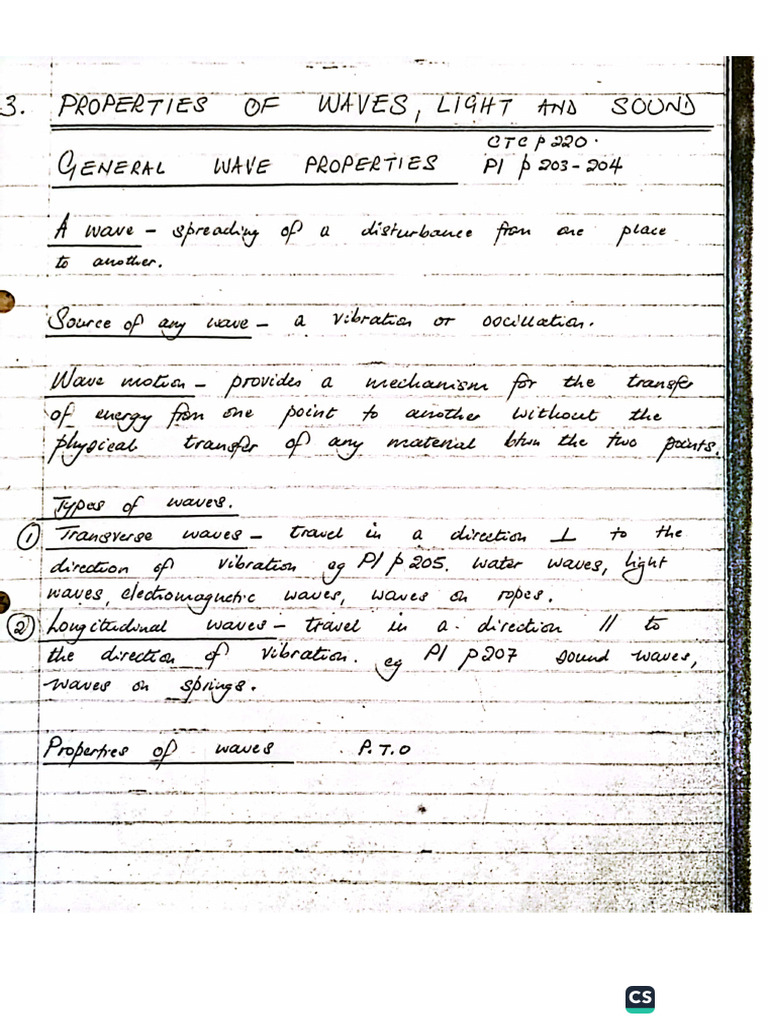 3. PROPERTIES OF WAVES, LIGHT AND SOUND
CTC p 220.
GENERAL WAVE PROPERTIES P1 p 203-204
A wave - spreading of a disturbance from one place
to another.
Source of any wave - a vibration or oscillation.
Wave motion - provides a mechanism for the transfer
of energy from one point to another without the
physical transfer of any material btwn the two points.
Types of waves.
① Transverse waves - travel in a direction ⊥ to the
direction of vibration eg P1 p 205. water waves, light
waves, electromagnetic waves, waves on ropes.
② Longitudinal waves - travel in a direction // to
the direction of vibration. eg P1 p 207 sound waves,
waves on springs.
Properties of waves P.T.O
CS